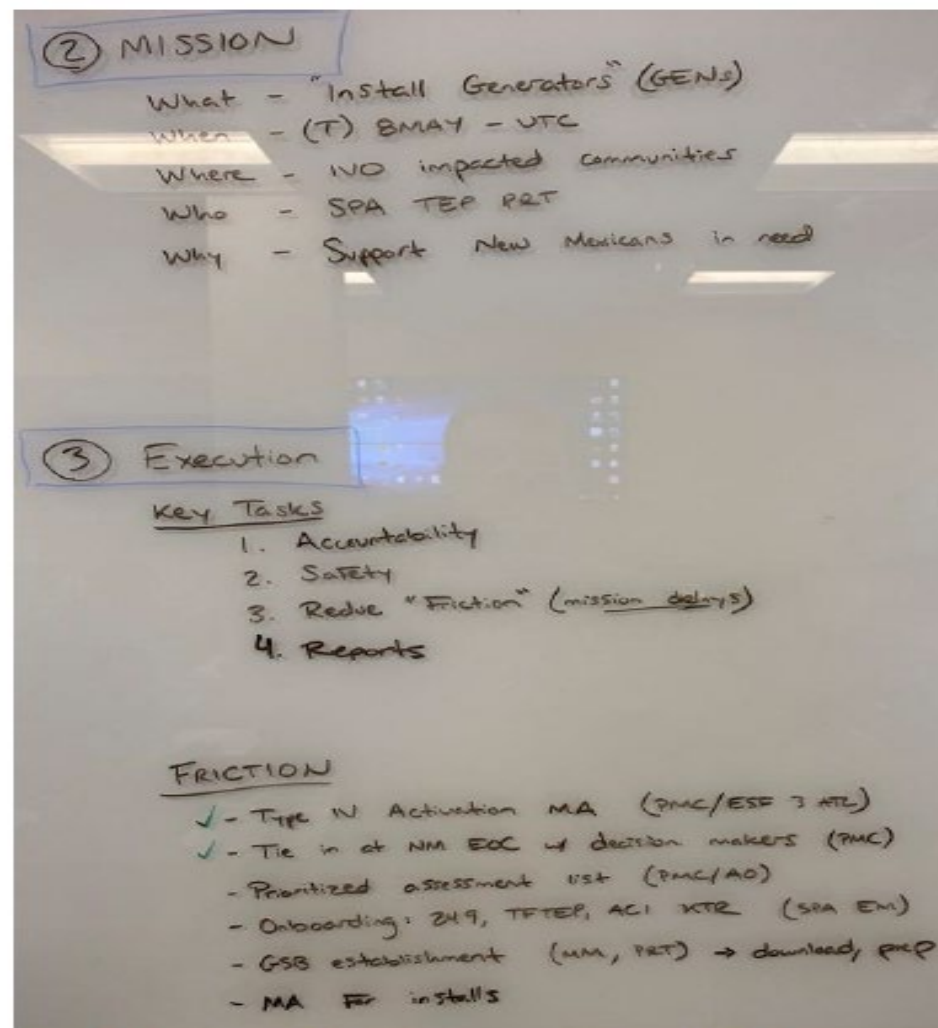 ② MISSION
What - "Install Generators" (GENs)
When - (T) 8MAY - UTC
Where - IVO impacted communities
Who - SPA TEP PRT
Why - Support New Mexicans in need
③ Execution
Key Tasks
1. Accountability
2. Safety
3. Redue "Friction" (mission delays)
4. Reports
FRICTION
✓ - Type IV Activation MA (PMC/ESF 3 ATL)
✓ - Tie in at NM EOC w/ decision makers (PMC)
- Prioritized assessment list (PMC/AO)
- Onboarding: 249, TFTEP, ACI KTR (SPA EM)
- GSB establishment (MM, PRT) → download, prep
- MA For installs